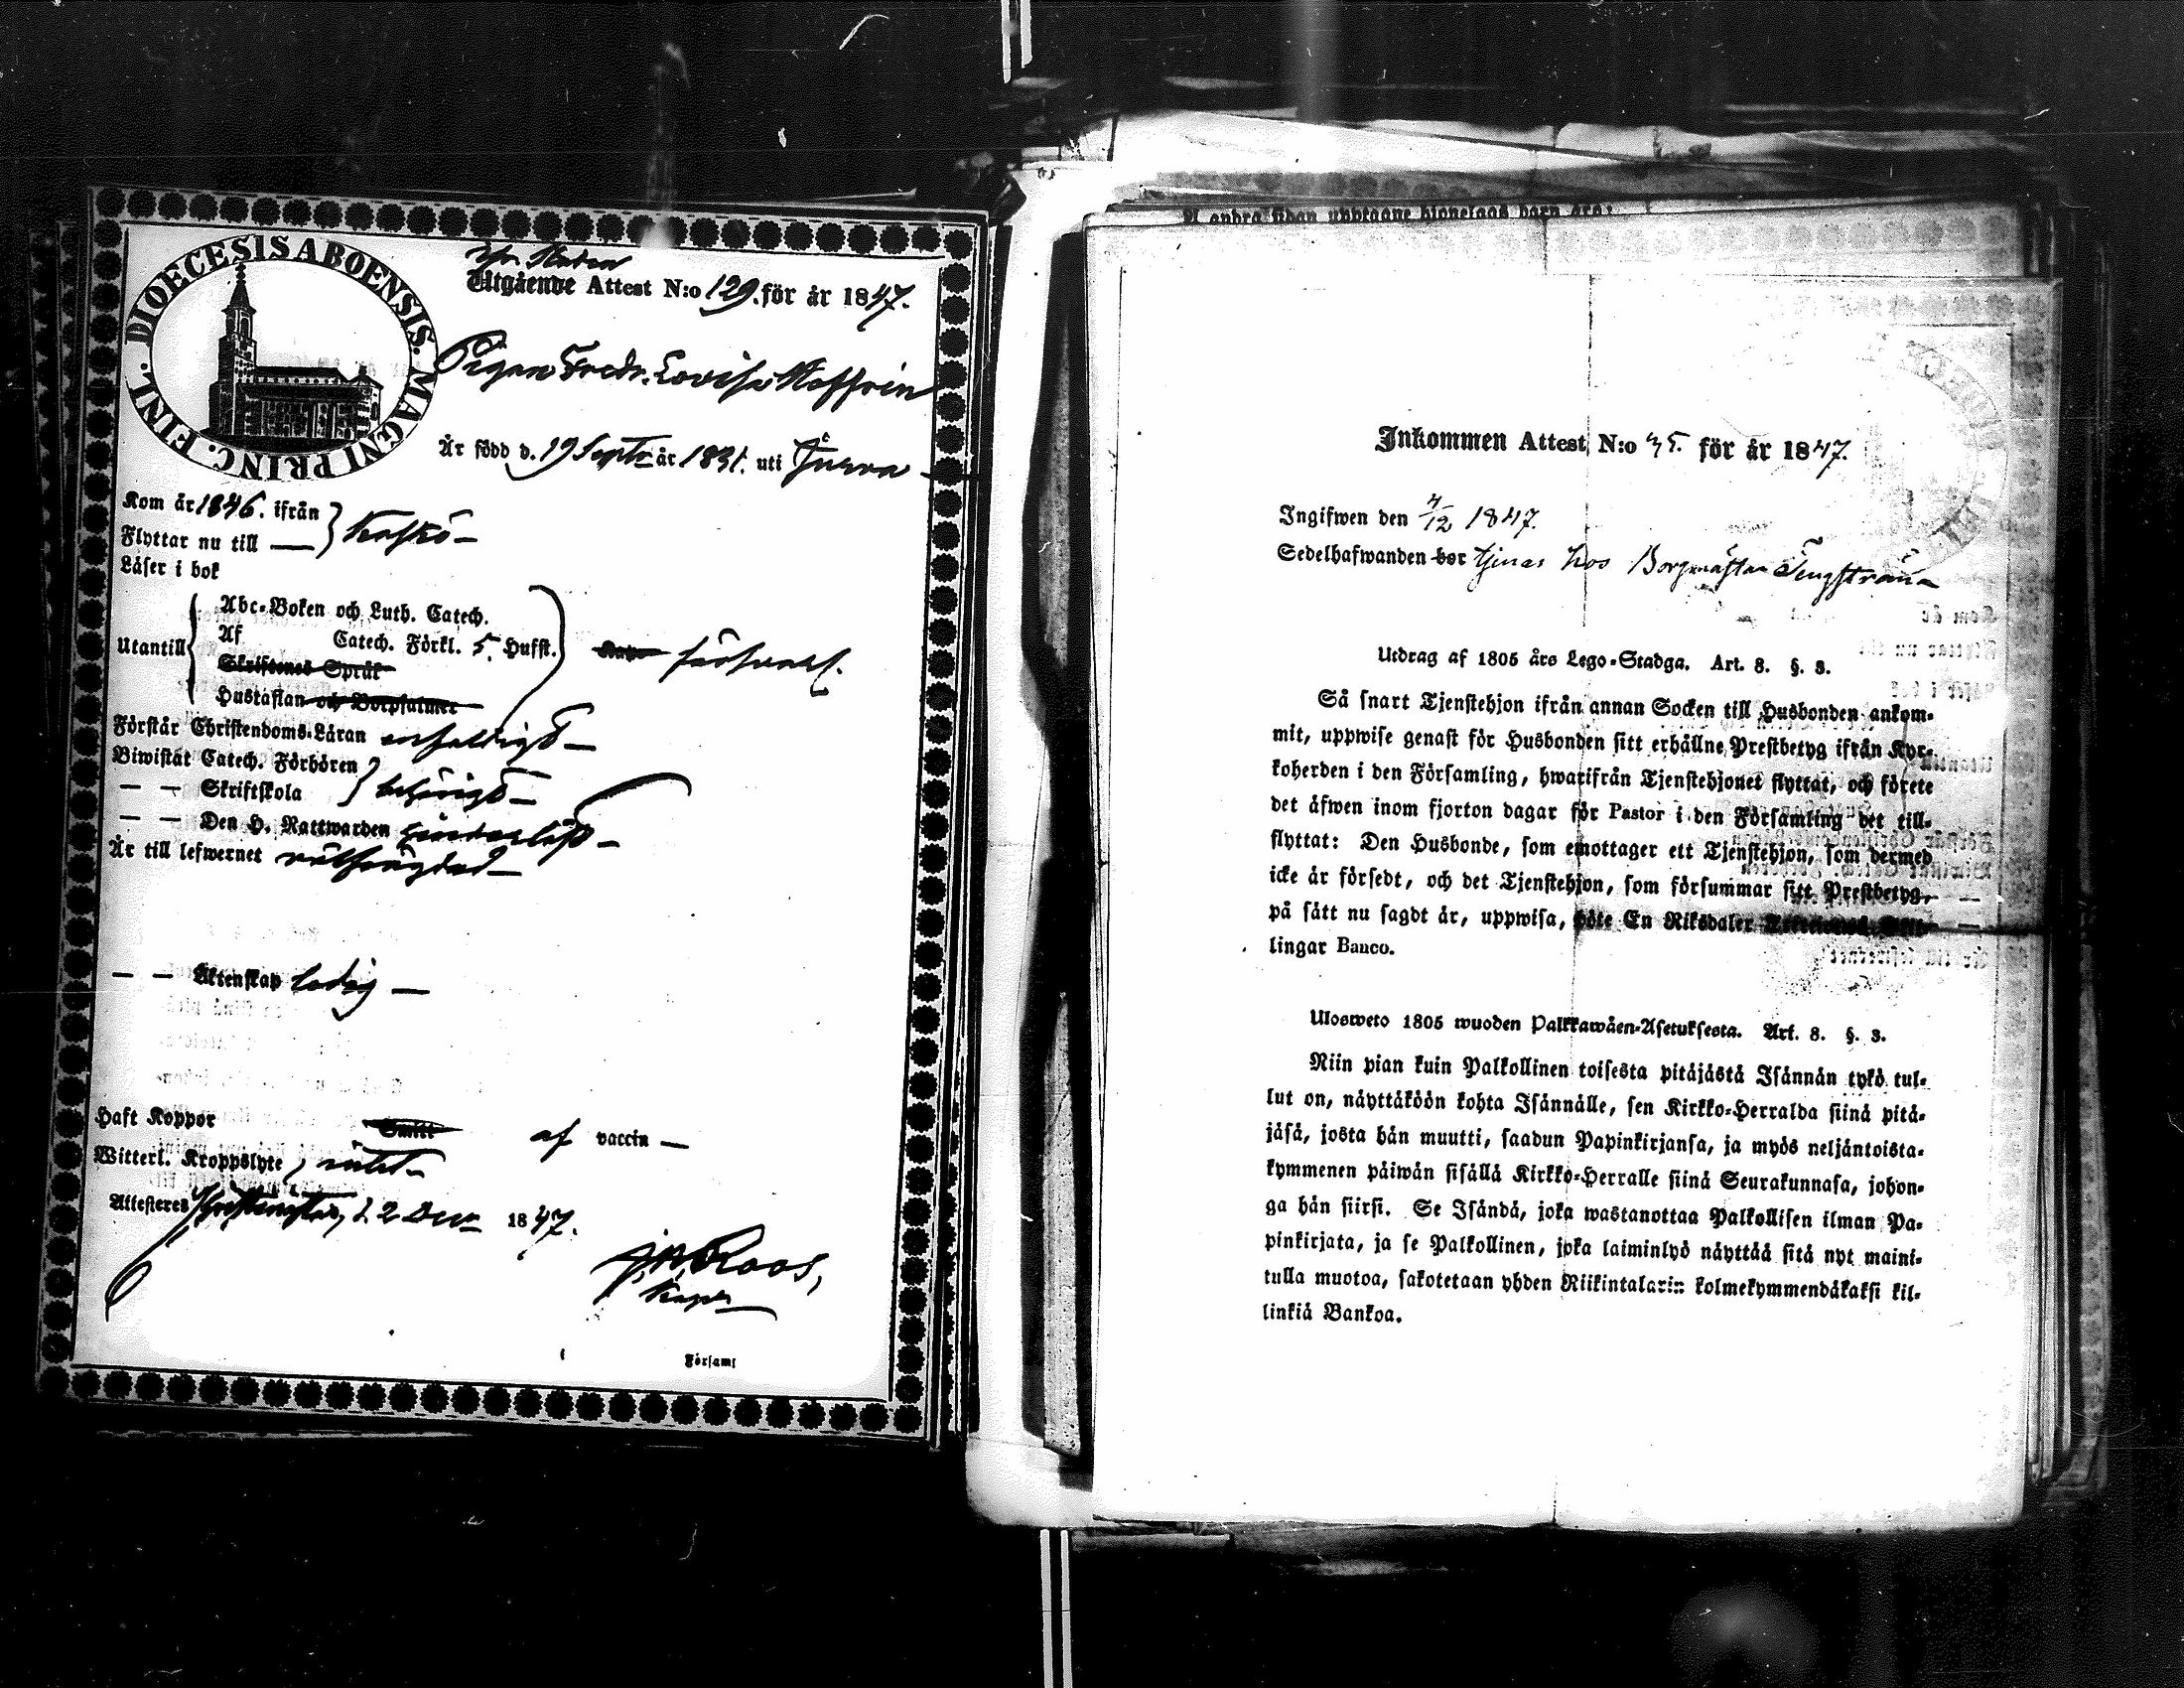 DIOECESIS ABOENSIS. MAGNI PRINC. FINL.
Utgående Attest N:o 129. för år 1847.
Pigan Fredr. Lovisa Hoffrin
Är född d. 19 Septr år 1831. uti Jurva
Kom år 1846. ifrån
Flyttar nu till — } Kaskö —
Läser i bok
Utantill
Abc-Boken och Luth. Catech.
Af Catech. Förkl. 5. Hufst. försvarl.
Skriftenes Språk
Hustaflan och Botpsalmer
Förstår Christendoms-Läran enfaldigt —
Biwistat Catech. Förhören
— — Skriftskola } behörigt —
— — Den H. Nattwarden
Är till lefwernet välfrägdad —
— — Äktenskap ledig —
Haft Koppor Smitt af vaccin —
Witterl. Kroppslyte, intet —
Attesteres Christinestad, d. 2 Decr 1847.
Roos,
Kapn
Församl
Å andra sidan upptagne hionelags barn äro:
Inkommen Attest N:o 35. för år 1847.
Ingifwen den 4/12 1847.
Sedelhafwanden bor tjenar hos Borgmästar Tengström
Utdrag af 1805 års Lego-Stadga. Art. 8. §. 3.
Så snart Tjenstehjon ifrån annan Socken till Husbonden ankom-
mit, uppwise genast för Husbonden sitt erhållne Prestbetyg ifrån Kyr-
koherden i den Församling, hwarifrån Tjenstehjonet flyttat, och förete
det äfwen inom fjorton dagar för Pastor i den Församling det till-
flyttat: Den Husbonde, som emottager ett Tjenstehjon, som dermed
icke är försedt, och det Tjenstehjon, som försummar sitt Prestbetyg,
på sätt nu sagdt är, uppwisa, böte En Riksdaler
lingar Banco.
Ulosweto 1805 wuoden Palkkawäen-Asetuksesta. Art. 8. §. 3.
Niin pian kuin Palkollinen toisesta pitäjästä Isännän tykö tul-
lut on, näyttäköön kohta Isännälle, sen Kirkko-Herralda siinä pitä-
jäsä, josta hän muutti, saadun Papinkirjansa, ja myös neljäntoista-
kymmenen päiwän sisällä Kirkko-Herralle siinä Seurakunnasa, johon-
ga hän siirsi. Se Isändä, joka wastanottaa Palkollisen ilman Pa-
pinkirjata, ja se Palkollinen, joka laiminlyö näyttää sitä nyt maini-
tulla muotoa, sakotetaan yhden Riikintalarin kolmekymmendäkaksi kil-
linkiä Bankoa.